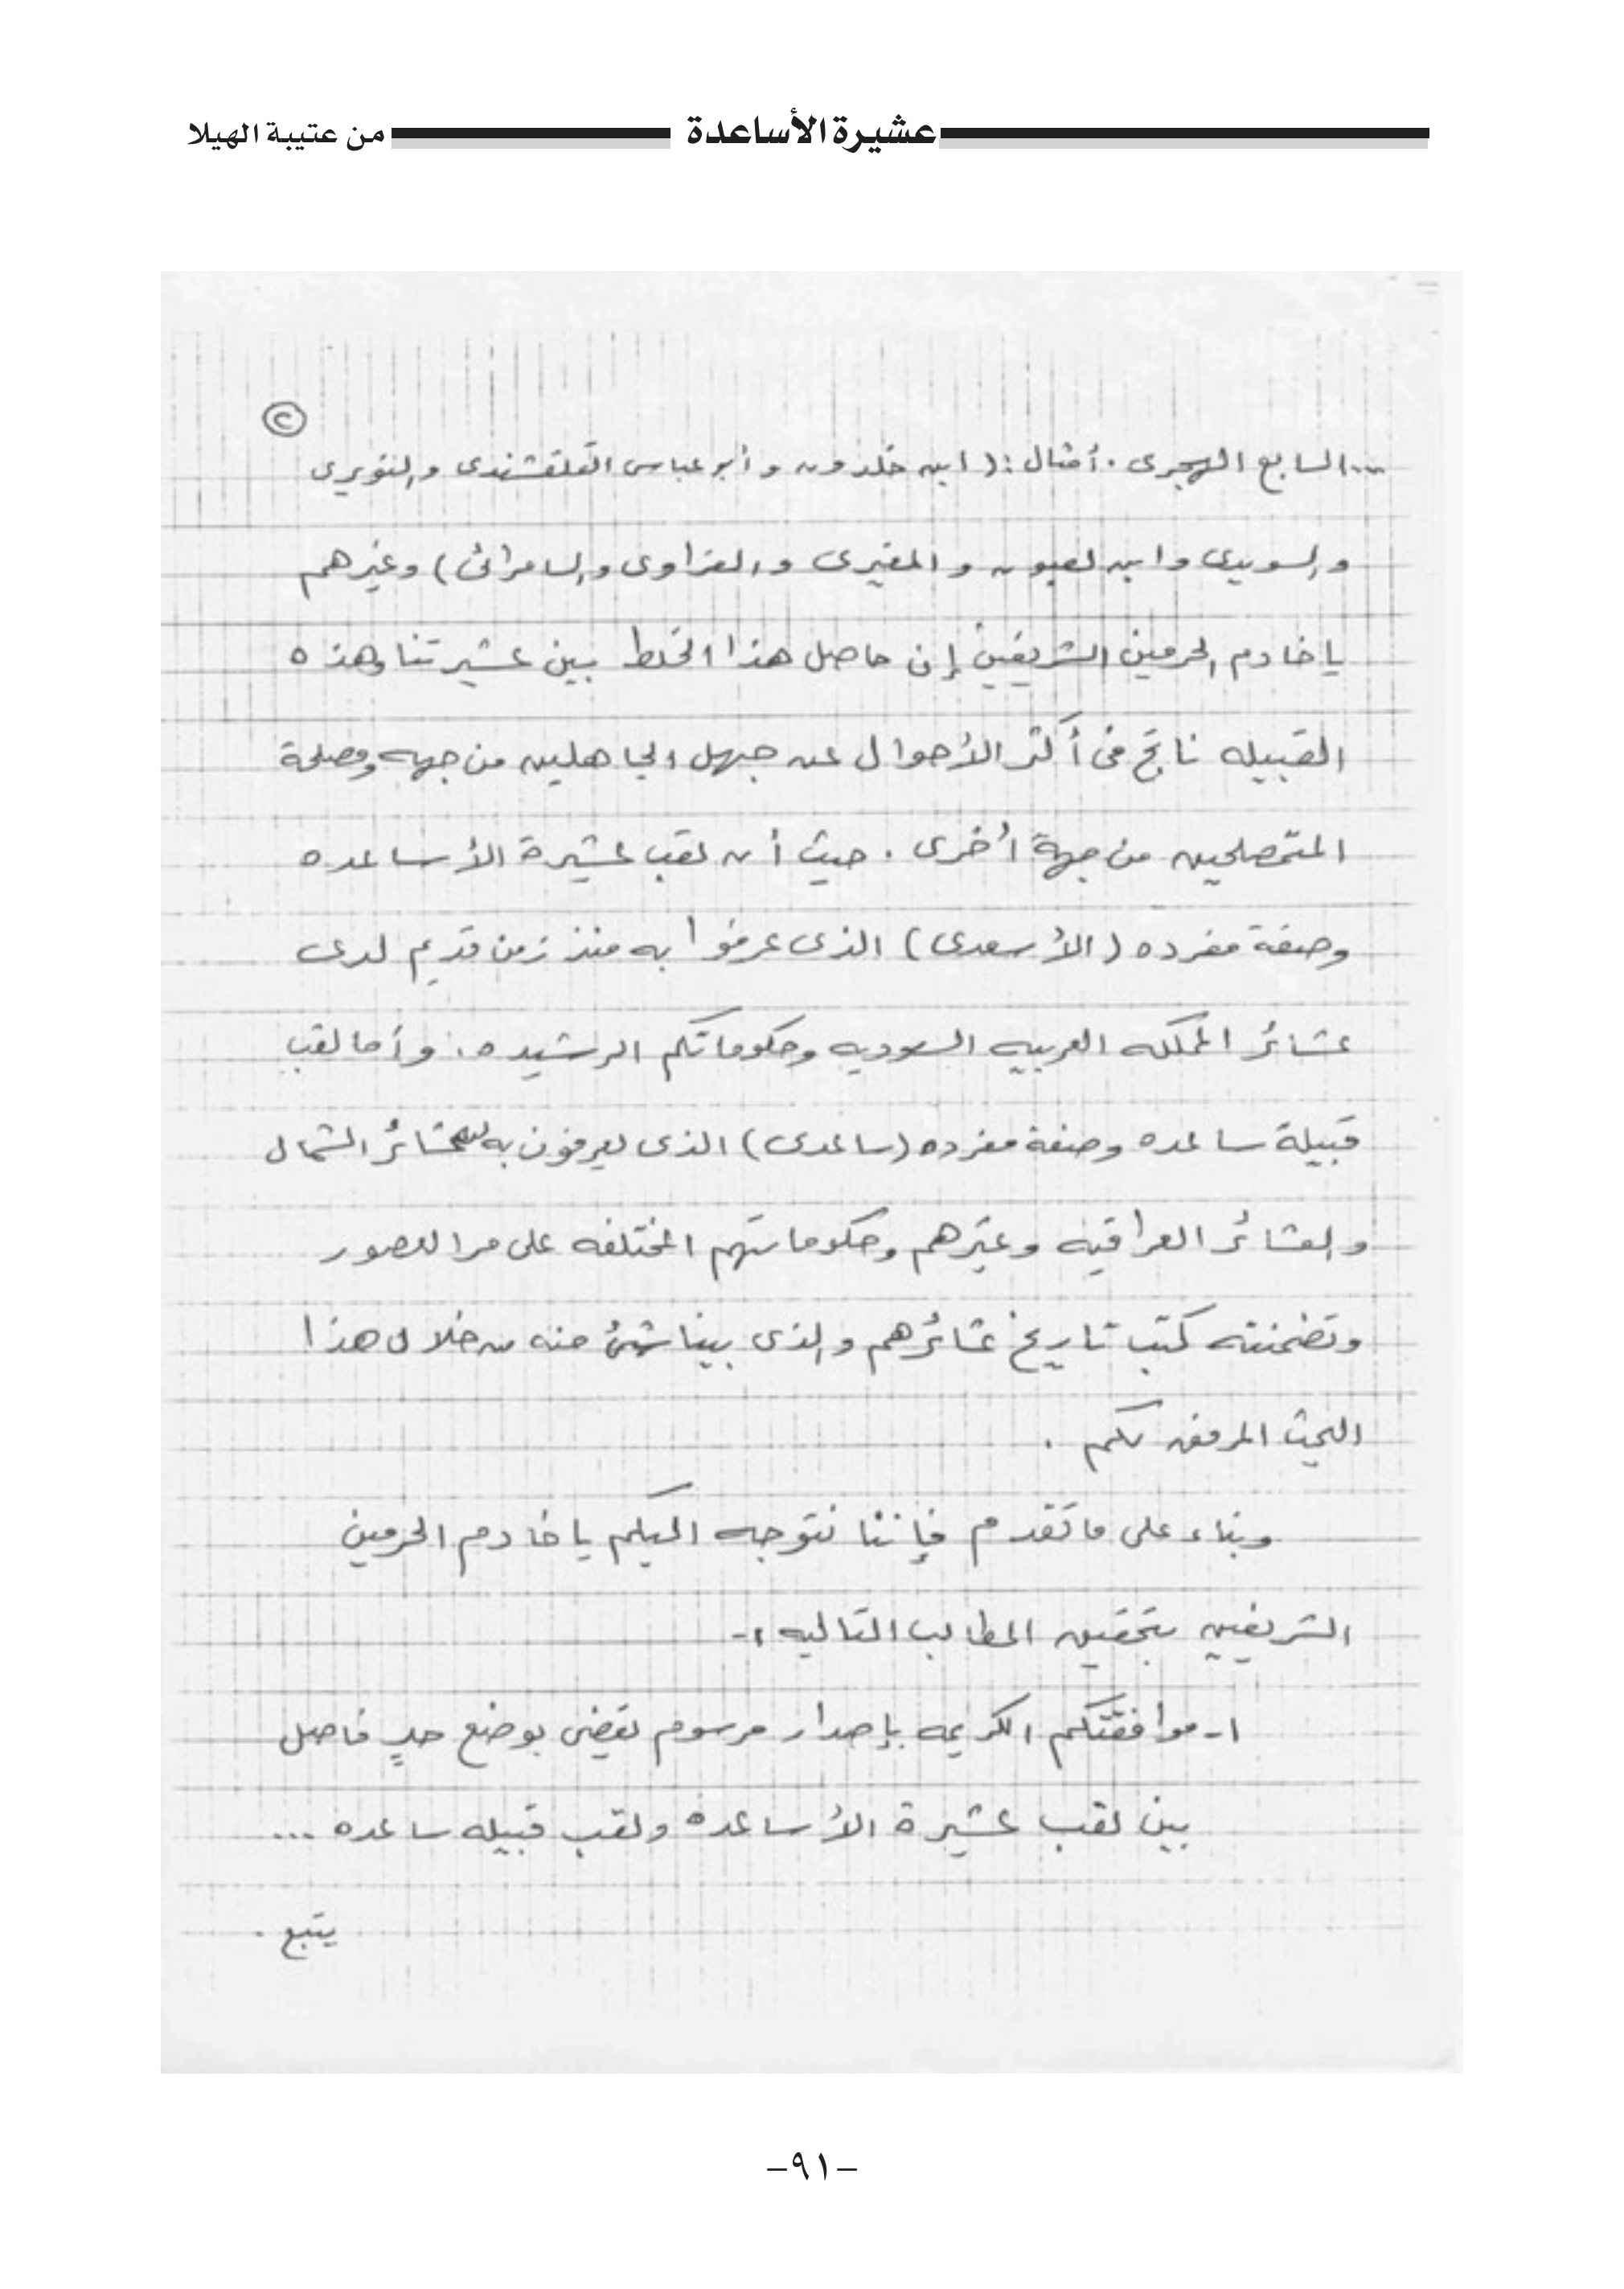 عشيرة الأساعدة من عتيبة الهيلا
٢
... السابع الهجرى . أمثال : ( ابن خلدون و أبو عباس القلقشندى والنويرى
والسويدى وابن لعبون و المغيرى والعزاوى والسامرائى ) وغيرهم
يا خادم الحرمين الشريفين إن حاصل هذا الخلط بين عشيرتنا وهذه
القبيله ناتج فى أكثر الأحوال عن جهل الجاهلين من جهه ومصلحة
المتمصلحين من جهة أخرى . حيث أن لقب عشيرة الأساعده
وصفة مفرده ( الأسعدى ) الذى عرفوا به منذ زمن قديم لدى
عشائر المملكه العربيه السعوديه وحكوماتكم الرشيده . وأما لقب
قبيلة ساعده وصفة مفرده ( ساعدى ) الذى يعرفون به لعشائر الشمال
والعشائر العراقيه وغيرهم وحكوماتهم المختلفه على مر العصور
وتضمنته كتب تاريخ عشائرهم والذى بينا شئ منه من خلال هذا
البحث المرفق لكم .
وبناء على ما تقدم فإننا نتوجه اليكم يا خادم الحرمين
الشريفين بتحقيق المطالب التاليه :-
١- موافقتكم الكريمه بإصدار مرسوم يقضى بوضع حدٍ فاصل
بين لقب عشيرة الأساعده ولقب قبيله ساعده ...
يتبع .
-٩١-